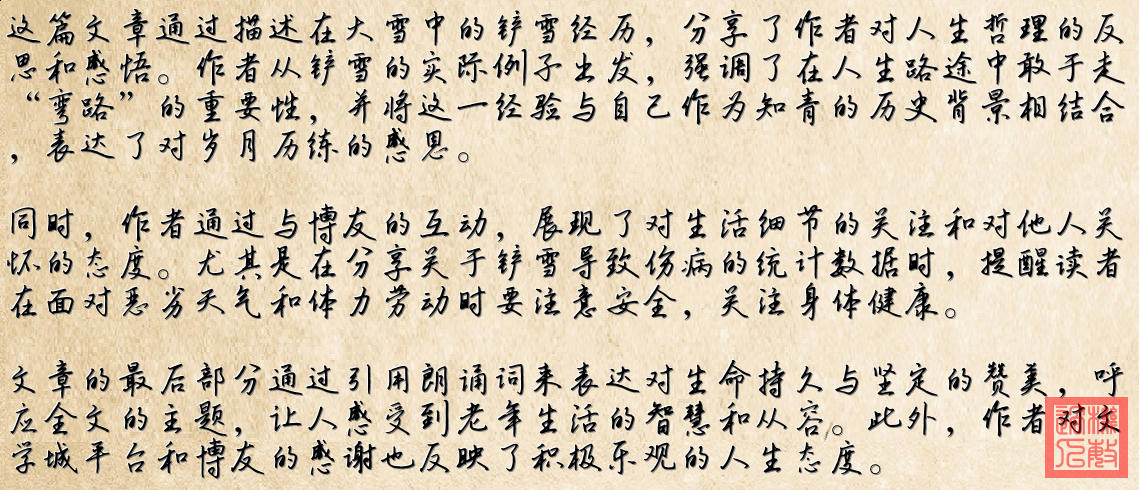 这篇文章通过描述在大雪中的铲雪经历，分享了作者对人生哲理的反
思和感悟。作者从铲雪的实际例子出发，强调了在人生路途中敢于走
“弯路”的重要性，并将这一经验与自己作为知青的历史背景相结合
，表达了对岁月历练的感恩。
同时，作者通过与博友的互动，展现了对生活细节的关注和对他人关
怀的态度。尤其是在分享关于铲雪导致伤病的统计数据时，提醒读者
在面对恶劣天气和体力劳动时要注意安全，关注身体健康。
文章的最后部分通过引用朗诵词来表达对生命持久与坚定的赞美，呼
应全文的主题，让人感受到老年生活的智慧和从容。此外，作者对文
学城平台和博友的感谢也反映了积极乐观的人生态度。